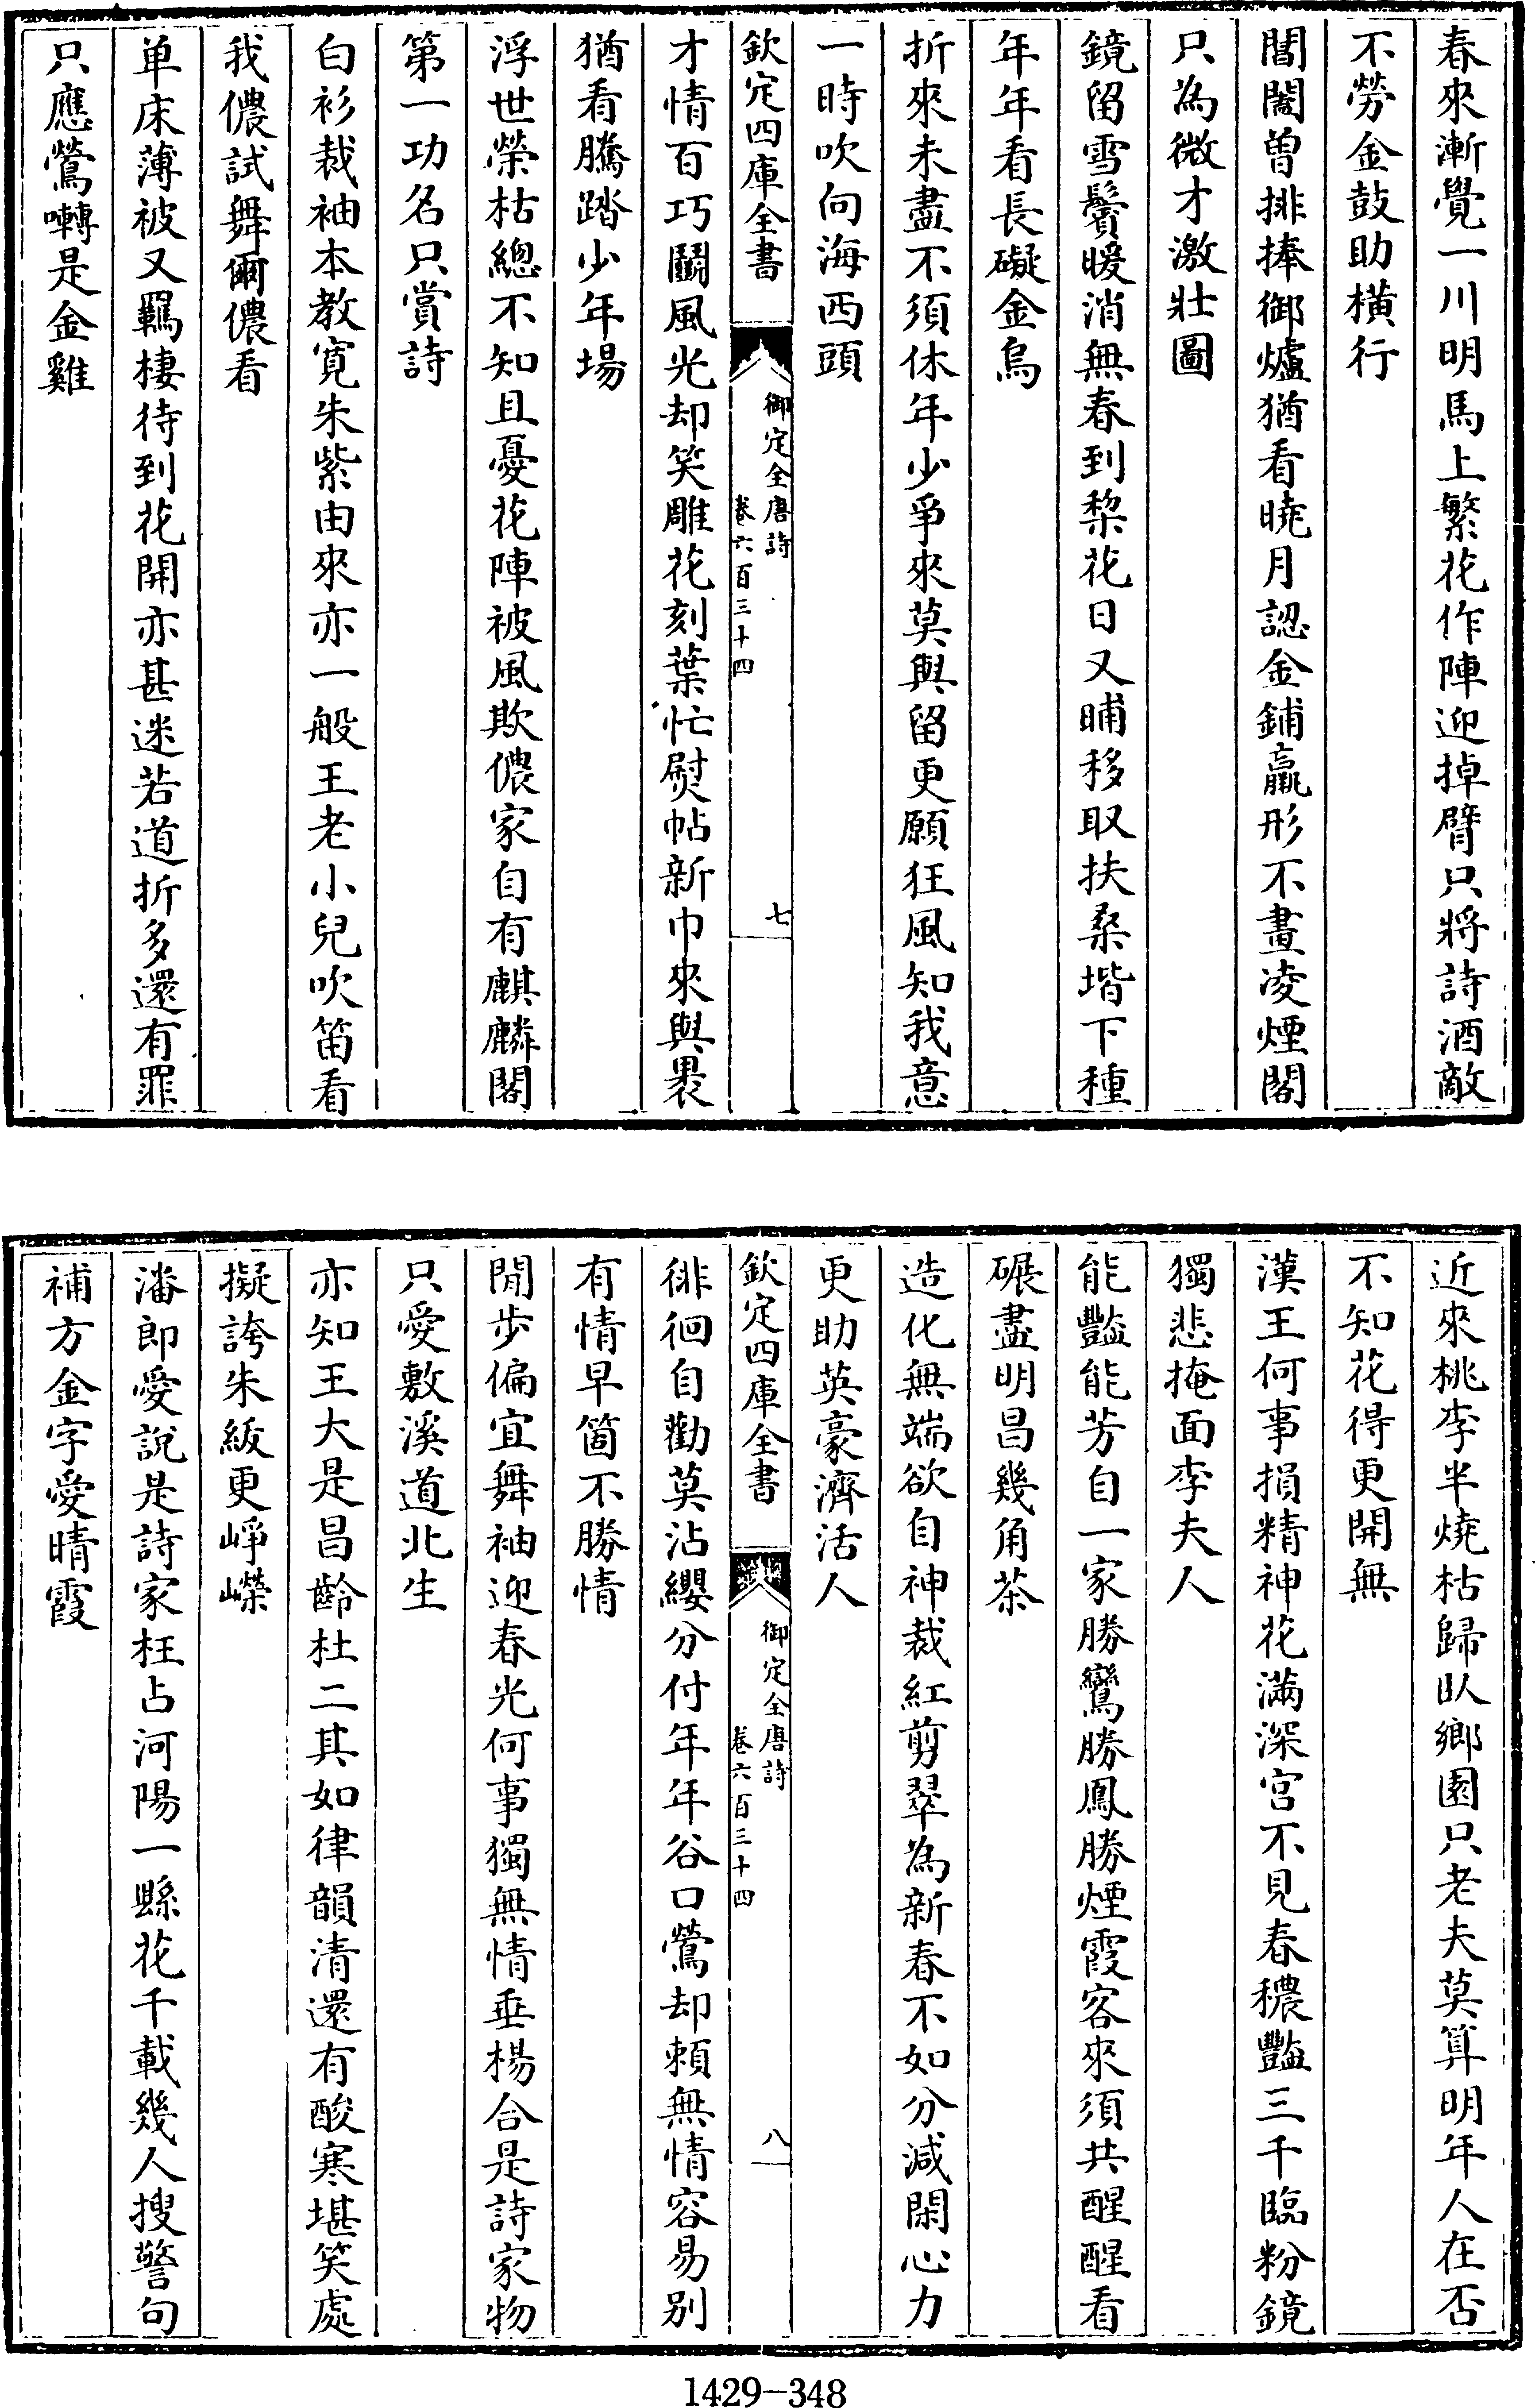 春來漸覺一川明馬上繁花作陣迎掉臂只將詩酒敵
不勞金鼓助橫行
閶闔曾排捧御爐猶看曉月認金鋪羸形不畫凌煙閣
只為微才激壯圖
鏡留雪鬢暖消無春到棃花日又晡移取扶桑堦下種
年年看長礙金烏
折來未盡不須休年少爭來莫與留更願狂風知我意
一時吹向海西頭
欽定四庫全書
御定全唐詩
卷六百三十四
七
才情百巧鬭風光却笑雕花刻葉忙熨帖新巾來與褁
猶看騰踏少年場
浮世榮枯總不知且憂花陣被風欺儂家自有麒麟閣
第一功名只賞詩
白衫裁袖本教寛朱紫由來亦一般王老小兒吹笛看
我儂試舞爾儂看
单床薄被又羈棲待到花開亦甚迷若道折多還有罪
只應鶯囀是金雞
近來桃李半燒枯歸臥鄉園只老夫莫算明年人在否
不知花得更開無
漢王何事損精神花滿深宮不見春穠豔三千臨粉鏡
獨悲掩面李夫人
能豔能芳自一家勝鸞勝鳳勝煙霞客來須共醒醒看
碾盡明昌幾角茶
造化無端欲自神裁紅剪翠為新春不如分減閑心力
更助英豪濟活人
欽定四庫全書
御定全唐詩
卷六百三十四
八
徘徊自勸莫沾纓分付年年谷口鶯却頼無情容易別
有情早箇不勝情
閒步偏宜舞袖迎春光何事獨無情垂楊合是詩家物
只愛敷溪道北生
亦知王大是昌齡杜二其如律韻清還有酸寒堪笑處
擬誇朱紱更崢嶸
潘郎愛說是詩家枉占河陽一縣花千載幾人搜警句
補方金字愛晴霞
1429-348